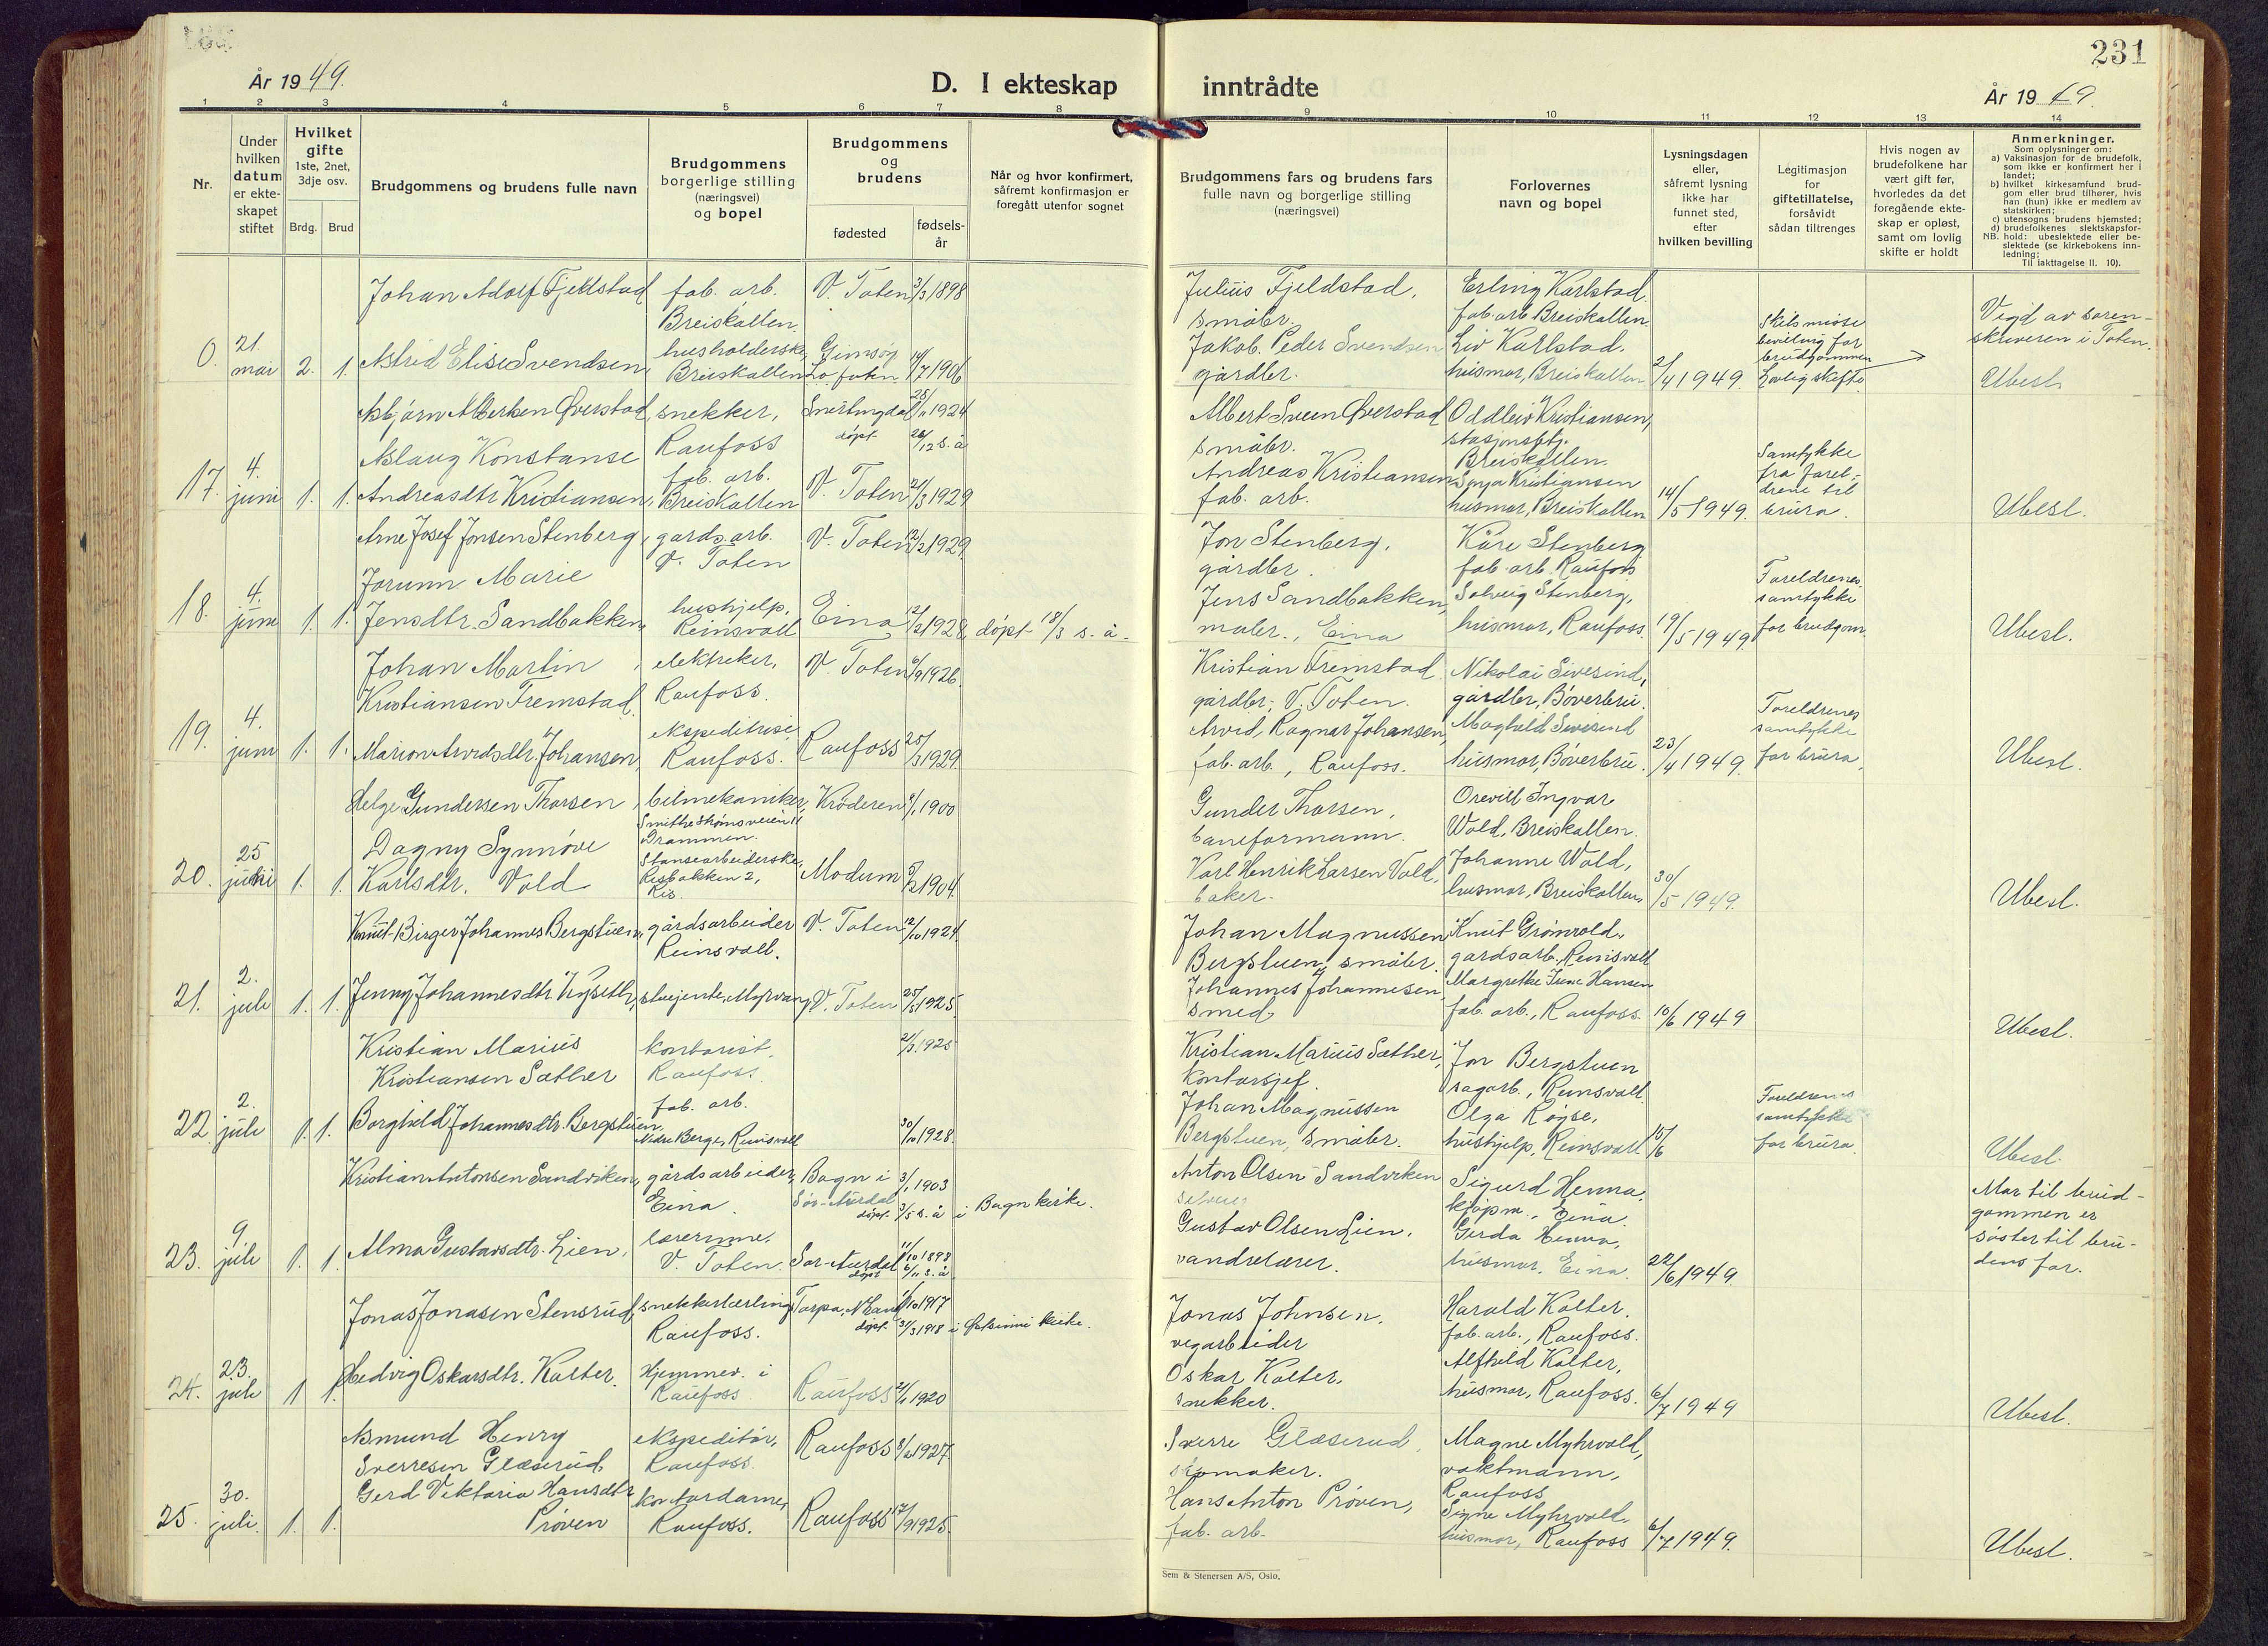 231
År 1949.
D. I ekteskap inntrådte
År 1949.
1 2 3 4 5 6 7 8 9 10 11 12 13 14
Nr.
Under hvilken datum er ekteskapet stiftet
Hvilket gifte
1ste, 2net, 3dje osv.
Brdg. Brud
Brudgommens og brudens fulle navn
Brudgommens borgerlige stilling (næringsvei) og bopel
Brudgommens og brudens
fødested
fødselsår
Når og hvor konfirmert, såfremt konfirmasjon er foregått utenfor sognet
Brudgommens fars og brudens fars fulle navn og borgerlige stilling (næringsvei)
Forlovernes navn og bopel
Lysningsdagen eller, såfremt lysning ikke har funnet sted, efter hvilken bevilling
Legitimasjon for giftetillatelse, forsåvidt sådan tiltrenges
Hvis nogen av brudefolkene har vært gift før, hvorledes da det foregående ekteskap er opløst, samt om lovlig skifte er holdt
Anmerkninger.
Som oplysninger om:
a) Vaksinasjon for de brudefolk, som ikke er konfirmert her i landet;
b) hvilket kirkesamfund brudgom eller brud tilhører, hvis han (hun) ikke er medlem av statskirken;
c) utensogns brudens hjemsted;
d) brudefolkenes slektskapsforhold: ubeslektede eller beslektede (se kirkebokens innledning;
NB.
Til iakttagelse II. 10).
Johan Adolf Fjeldstad fab. arb. Breiskallen. V. Toten 3/3 1898
Julius Fjeldstad, småbr.
Erling Karlstad fab. arb. Breiskallen.
0. 21. mai 2. 1. Astrid Elise Svendsen, husholderske, Breiskallen Gimsøy Lofoten 14/7 1906
Jakob Peder Svendsen gårdbr.
Liv Karlstad, husmor, Breiskallen
2/4 1949.
Skilsmisse bevilling for brudgommen Lovlig skifte
Vigd av sorenskriveren i Toten.
Ubesl.
Asbjørn Albertsen Øverstad, snekker, Raufoss Snertingdal 25/11 1924 døpt 26/12 s. å
Albert Sveen Øverstad småbr.
Oddleiv Kristiansen, stasjonsbtj. Breiskallen.
17. 4. juni 1. 1. Aslaug Konstanse Andreasdtr Kristiansen, fab. arb. Breiskallen V. Toten 21/3 1929
Andreas Kristiansen fab. arb.
Sonja Kristiansen husmor, Breiskallen
14/5 1949.
Samtykke fra foreldrene til brura.
Ubesl.
Arne Josef Jonsen Stenberg, gardsarb. V. Toten V. Toten 12/2 1929.
Jon Stenberg, gårdbr.
Kåre Stenberg fab. arb. Raufoss
18. 4. juni 1. 1. Jorunn Marie Jensdtr. Sandbakken, hushjelp, Reinsvoll Eina 12/2 1928, døpt 18/3 s. å.
Jens Sandbakken, maler, Eina
Solveig Stenberg, husmor, Raufoss.
19/5 1949
Foreldrenes samtykke for brudgom
Ubesl.
Johan Martin Kristiansen Fremstad, elektriker, Raufoss. V. Toten 6/9 1926.
Kristian Fremstad gårdbr., V. Toten.
Nikolai Sivesind, gårdbr, Bøverbru.
19. 4. juni 1. 1. Marion Arvidsdtr. Johansen, ekspeditrise, Raufoss. Raufoss 25/3 1929.
Arvid Ragnar Johansen, fab. arb., Raufoss.
Maghild Sivesind husmor, Bøverbru.
23/4 1949.
Foreldrenes samtykke for brura.
Ubesl.
Helge Gundersen Thorsen, bilmekaniker, Drammen. Krøderen 1900
Gunder Thorsen, baneformann.
Orvill Ingvar Wold, Breiskallen.
20. 25 juni 1. 1. Dagny Synnøve Karlsdtr. Vold Stansearbeiderske, Risbakken 2, Ris. Modum 5/2 1904.
Karl Henrik Larsen Vold, baker.
Johanne Wold, husmor, Breiskallen
30/5 1949.
Ubesl.
Knut Birger Johannes Bergstuen, gårdsarbeider Reinsvoll. V. Toten 12/10 1924.
Johan Magnussen Bergstuen, småbr.
Knut Grønvold, gardsarb., Reinsvoll
21. 2. juli 1. 1. Jenny Johannesdtr. stuejente, V. Toten 25/5 1925.
Johannes Johannesen, smed
Margrethe Irene Hansen fab. arb., Raufoss.
10/6 1949
Ubesl.
Kristian Marius Kristiansen Sæther kontorist, Raufoss. 1925
Kristian Marius Sæther, kontorsjef.
Jon Bergstuen sagarb., Reinsvoll.
22. 2. juli 1. 1. Borghild Johannesdtr. Bergstuen, fab. arb. Nedre Berge, Reinsvoll 30/10 1928.
Johan Magnussen Bergstuen, småbr.
Olga Røyse, hushjelp, Reinsvoll
15/6
Foreldrenes samtykke for brura.
Ubesl.
Kristian Antonsen Sandviken, gårdsarbeider, Eina. Bagn i Sør-Aurdal 3/1 1903 døpt 3/5 s. å i Bagn kirke.
Anton Olsen Sandviken
Sigurd Henna, kjøpm., Eina.
23. 9. juli 1. 1. Alma Gustavsdtr. Lien, lærerinne, V. Toten. Sør-Aurdal 11/10 1898 døpt 6/11 s. å
Gustav Olsen Lien, vandrelærer.
Gerda Henna, husmor, Eina.
22/6 1949.
Mor til brudgommen er søster til brudens far.
Jonas Jonasen Stensrud, snekkerlærling, Raufoss. Torpa, N. Land 1/10 1917 døpt 31/3 1918 i kirke.
Jonas Johnsen, vegarbeider
Harald Kolter, fab. arb., Raufoss.
24. 23. juli 1 1. Hedvig Oskarsdtr. Kolter. Hjemmev. i Raufoss Raufoss 1920
Oskar Kolter, snekker.
Alfhild Kolter, husmor, Raufoss.
6/7 1949
Ubesl.
Asmund Henry Sverresen Glæserud, ekspeditør, Raufoss. Raufoss 8/2 1927.
Sverre Glæserud, skomaker.
Magne Myhrvold, vaktmann, Raufoss
25. 30. juli. 1. 1. Gerd Viktoria Hansdtr. Prøven kontordame, Raufoss. Raufoss 17/9 1925.
Hans Anton Prøven, fab. arb.
Signe Myhrvold, husmor, Raufoss
6/7 1949.
Ubesl.
Sem & Stenersen A/S, Oslo.